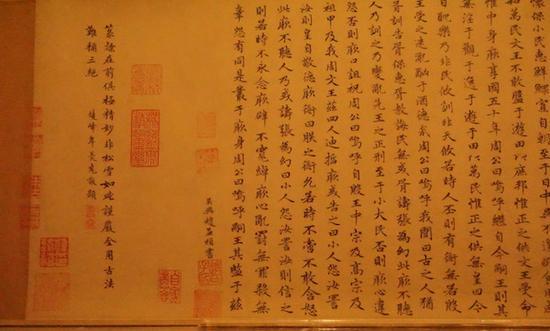 懷保小民惠鮮鰥寡自朝至于日中昃
和萬民文王不敢盤于遊田以庶邦惟正之供文王受命
惟中身厥享國五十年周公曰嗚呼繼自今嗣王則其
無淫于觀于逸于遊于田以萬民惟正之供無皇曰今
日耽樂乃非民攸訓非天攸若時人丕則有愆無若殷
王受之迷亂酗于酒德哉周公曰嗚呼我聞曰古之人猶
胥訓告胥保惠胥教誨民無或胥譸張為幻此厥不聽
人乃訓之乃變亂先王之正刑至于小大民否則厥心違
怨否則厥口詛祝周公曰嗚呼自殷王中宗及高宗及
祖甲及我周文王茲四人迪哲厥或告之曰小人怨汝詈
汝則皇自敬德厥愆曰朕之愆允若時不啻不敢含怒
此厥不聽人乃或譸張為幻曰小人怨汝詈汝則信之
則若時不永念厥辟不寬綽厥心亂罰無罪殺無
辜怨有同是叢于厥身周公曰嗚呼嗣王其監于茲
吳興趙孟頫書
篆隸在前俱極精妙非松雪如此謹嚴全用古法
難稱三絕
雙峰年羹堯敬題